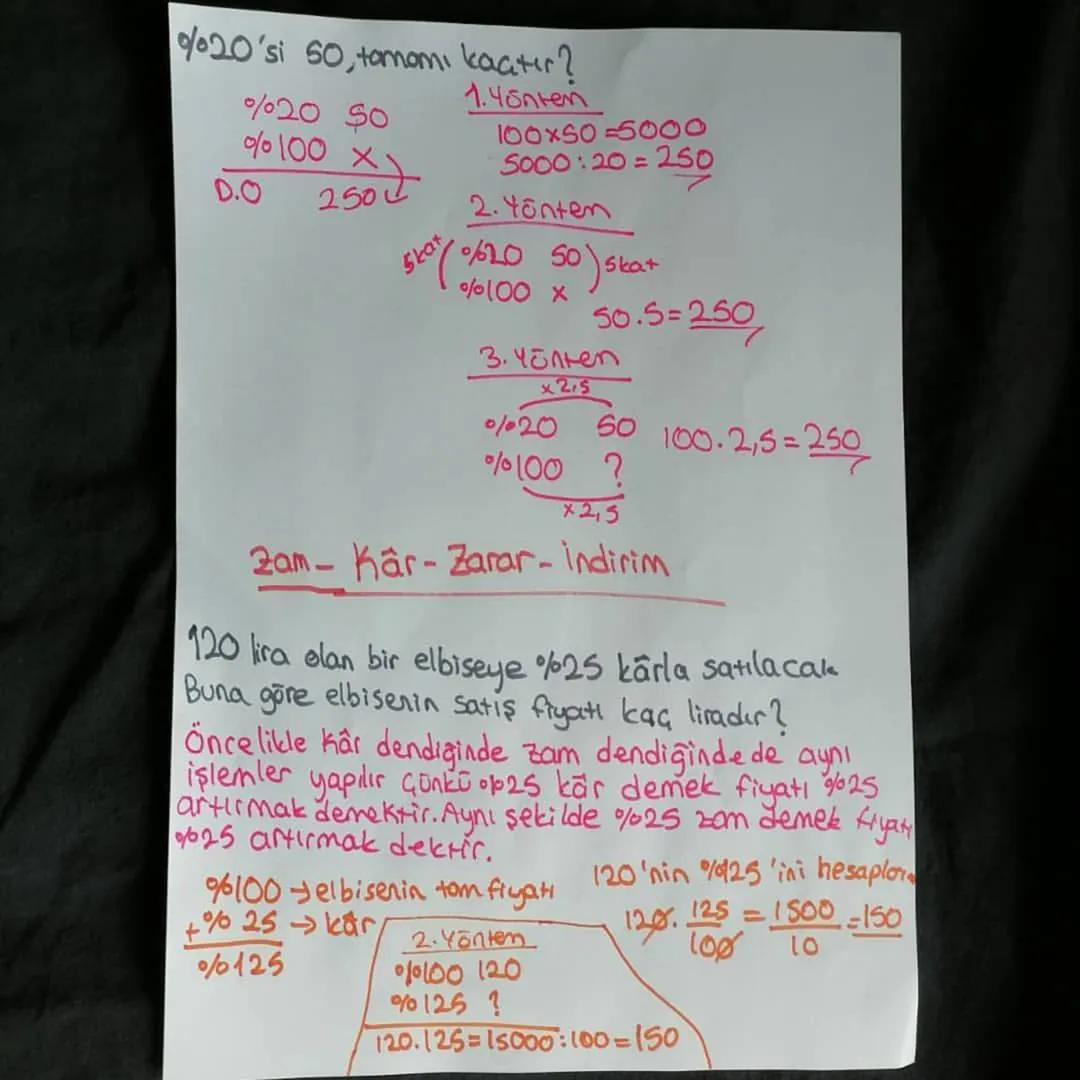 %20'si 50, tamamı kaçtır?
%20 50
%100 x
D.O 250
1. Yöntem
100x50=5000
5000:20=250
2. Yöntem
5kat (%20 50) 5kat
%100 x
50.5=250
3. Yöntem
x2,5
%20 50
%100 ?
x2,5
100.2,5=250
Zam- Kâr- Zarar- İndirim
120 lira olan bir elbiseye %25 kârla satılacak
Buna göre elbisenin satış fiyatı kaç liradır?
Öncelikle kâr dendiğinde zam dendiğinde de aynı
işlemler yapılır Çünkü %25 kâr demek fiyatı %25
artırmak demektir. Aynı şekilde %25 zam demek fiyatı
%25 artırmak dektir.
%100 → elbisenin tam fiyatı
+%25 → kâr
%125
2. Yöntem
%100 120
%125 ?
120.125=15000:100=150
120'nin %125'ini
120. 125/100 = 1500/10 = 150